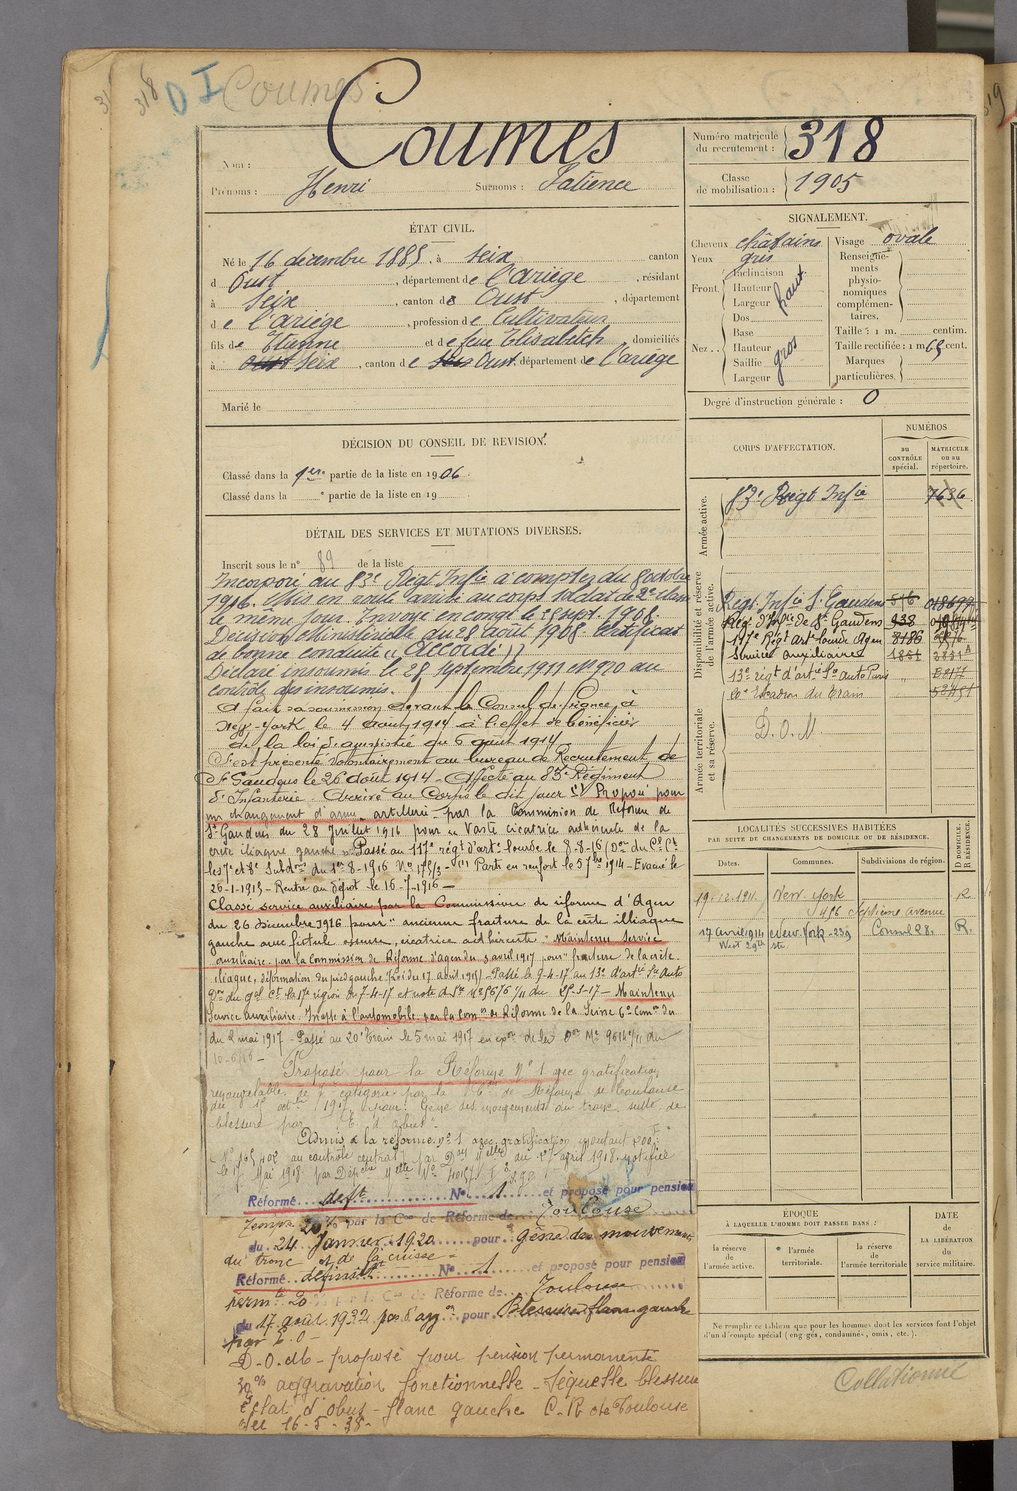 318 D I Coumes
Coumes
Nom :
Prénoms : Henri Surnoms : Patience
Numéro matricule du recrutement : 318
Classe de mobilisation : 1905
ÉTAT CIVIL.
Né le 16 décembre 1885, à Seix canton
d Oust, département de l'Ariège, résidant
à Seix, canton de Oust, département
de l'Ariège, profession de Cultivateur
fils de Etienne et de feue Elisabeth domiciliés
à Oust Seix, canton de Seix Oust département de l'Ariège
Marié le
DÉCISION DU CONSEIL DE REVISION.
Classé dans la 1ère partie de la liste en 1906
Classé dans la ° partie de la liste en 19
DÉTAIL DES SERVICES ET MUTATIONS DIVERSES.
Inscrit sous le n° 89 de la liste
Incorporé au 83e Régt Infie à compter du 8 octobre
1906. Mis en route arrivé au corps soldat de 2e classe
le même jour. Envoyé en congé le 25 sept. 1908.
Décision Ministérielle du 28 août 1908. Certificat
de bonne conduite "Accordé"
Déclaré insoumis le 28 septembre 1911 N° 920 au
contrôle des insoumis.
A fait sa soumission devant le Consul de france, à
New-York le 4 août 1914 à l'effet de bénéficier
de la loi d'amnistie du 5 août 1914
S'est présenté volontairement au bureau de Recrutement de
St Gaudens le 26 août 1914 - Affecté au 83e Régiment
d'Infanterie. Arrivé au Corps le dit jour (1) Proposé pour
un changement d'arme, artillerie - par la Commission de Réforme de
St Gaudens du 28 Juillet 1916 pour "Vaste cicatrice adhérente de la
crête iliaque gauche" Passé au 117e régt d'artie lourde le 8-8-16 (Don du Gal Ct
les 17e et 18e Subdons du 1er-8-1916 (1) Parti en renfort le 5 7bre 1914 - Evacué le
26-1-1915 - Rentré au dépôt le 16-7-1916 -
Classé service auxiliaire par la Commission de réforme d'Agen
du 26 décembre 1916 pour "ancienne fracture de la crête illiaque
gauche avec fistule osseuse, cicatrice adhérente" Maintenu service
auxiliaire par la Commission de Réforme d'Agen du 3 avril 1917 pour "fracture de la crête
iliaque, déformation du pied gauche (Loi du 17 août 1915) - Passé le 9-4-17 au 13e d'artie Son Auto
Don du gal Ct la 17e région du 7-4-17 - Maintenu
Service Auxiliaire. Inapte à l'automobile. par la Comon de Réforme de la Seine
du 2 mai 1917 - Passé au 20e Train le 5 mai 1917
Proposé pour la Réforme N° 1 avec gratification
renouvelable de catégorie par la Con de Réforme de Toulouse
du octbre 1917 pour: Gêne des mouvements du tronc suite de
blessure par E. d'obus.
Admis à la réforme n° 1 avec gratification montant 200 F
au contrôle central par Don Mlle du 27 avril 1918 notifiée
Réformé deft N° 1 et proposé pour pension
Tempre 20% par la Con de Réforme de Toulouse
du 24 Janvier 1920 pour: gêne des mouvements
du tronc et de la cuisse -
Réformé définitt N° 1 et proposé pour pension
permte 20 % par la Con de Réforme de Toulouse
du 17 août 1932 pas d'agg on pour Blessure flanc gauche
par E.O -
D.O.M - proposé pour pension permanente
30% aggravation fonctionnelle - Séquelle blessure
Eclat d'obus - flanc gauche C.R de Toulouse
du 16-5-35-
SIGNALEMENT.
Cheveux châtains
Yeux gris
Front. Inclinaison
Hauteur haut
Largeur
Nez.. Dos
Base
Hauteur gros
Saillie
Largeur
Visage ovale
Renseignements physionomiques complémentaires.
Taille : 1 m. centim.
Taille rectifiée : 1 m 65 cent.
Marques particulières.
Degré d'instruction générale : 0
CORPS D'AFFECTATION.
NUMÉROS
au CONTRÔLE spécial.
MATRICULE ou au répertoire.
Armée active.
83e Régt Infie 7636
Disponibilité et réserve de l'armée active.
Régt. Infie St Gaudens 516
Régt d'Infie de St Gaudens 938
117e Régt Artie lourde Agen 8186
Services Auxiliaires 1851
13e régt d'artie Son Auto Paris "
20e Escadron du Train "
Armée territoriale et sa réserve.
D. O. M
LOCALITÉS SUCCESSIVES HABITÉES
PAR SUITE DE CHANGEMENTS DE DOMICILE OU DE RÉSIDENCE.
Dates. Communes. Subdivisions de région. D DOMICILE. R RÉSIDENCE.
19-12-1911 New-York R
496 Septième avenue
17 avril 1914 New-York-239 Consul 28. R.
West 29th str.
ÉPOQUE
À LAQUELLE L'HOMME DOIT PASSER DANS :
la réserve de l'armée active.
l'armée territoriale.
la réserve de l'armée territoriale
DATE de LA LIBÉRATION du service militaire.
Ne remplir ce tableau que pour les hommes dont les services font l'objet
d'un décompte spécial (engagés, condamnés, omis, etc.).
Collationné